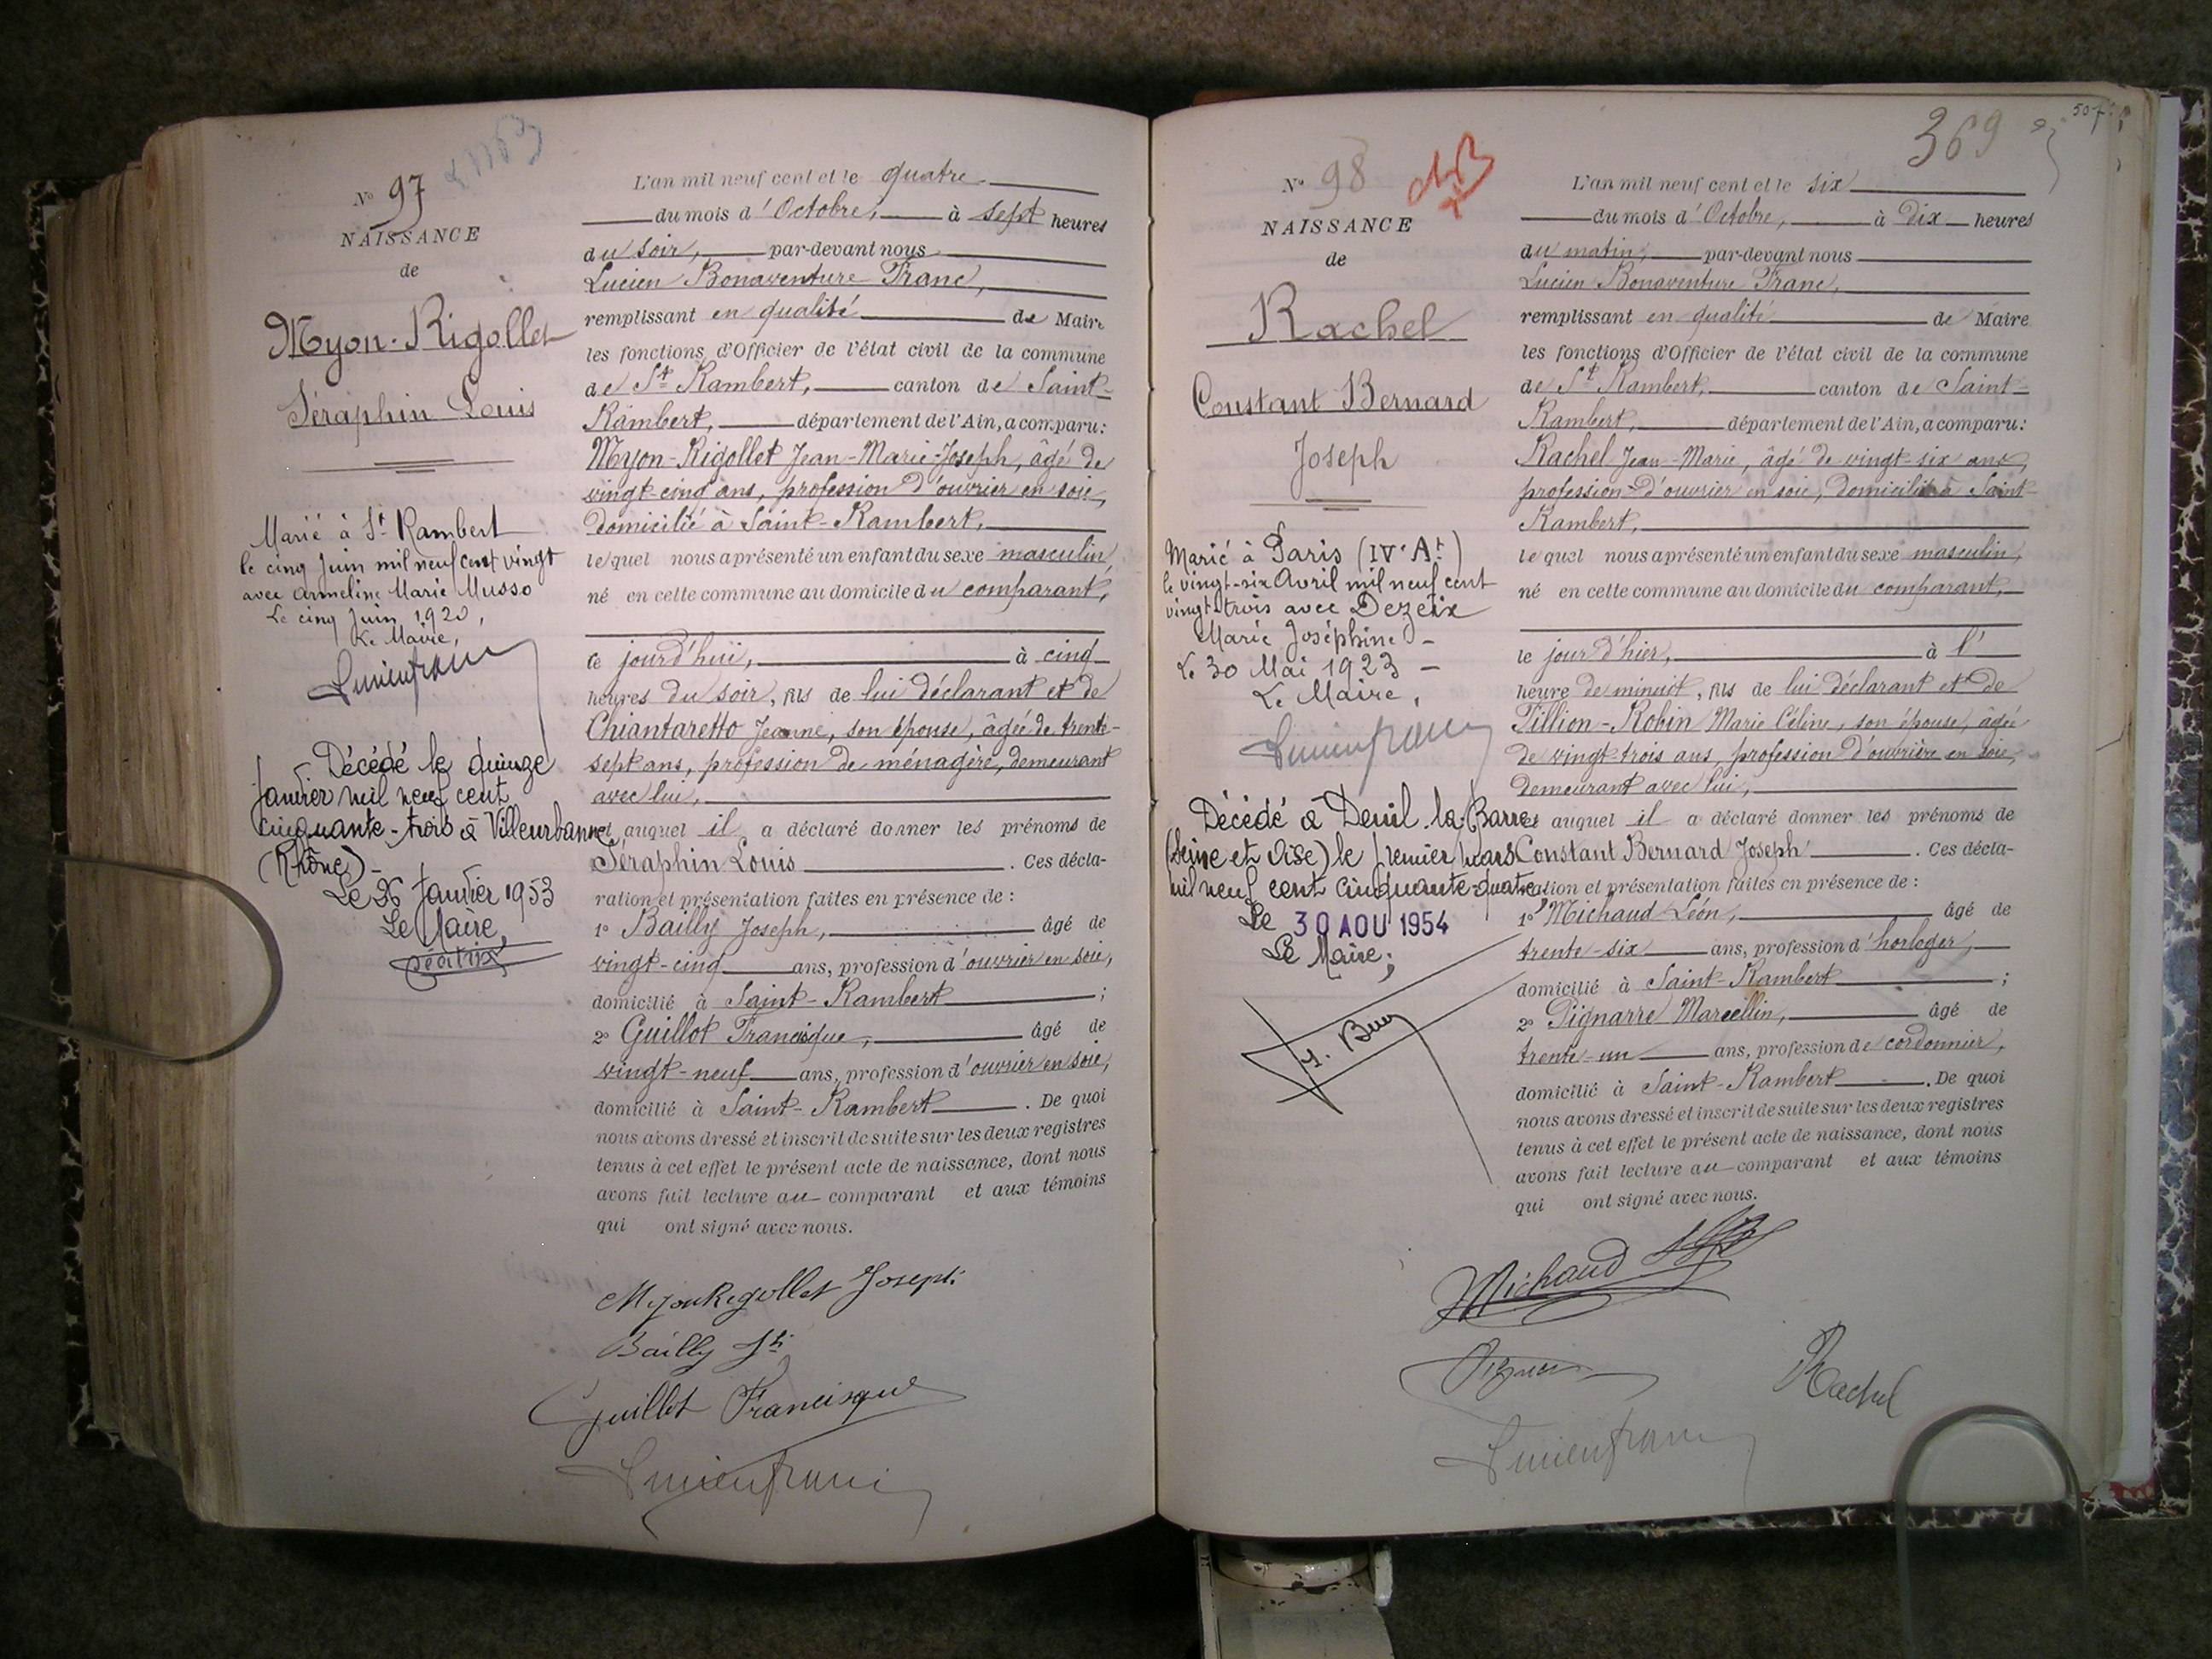 N° 97
NAISSANCE
de
Myon-Rigollet
Séraphin Louis
Marié à St Rambert
le cinq Juin mil neuf cent vingt
avec Armeline Marie Musso
Le cinq Juin 1920,
Le Maire,
Lucien franc
Décédé le quinze
Janvier mil neuf cent
cinquante-trois à Villeurbanne
(Rhône)-
Le 26 Janvier 1953
Le Maire,
L'an mil neuf cent et le quatre
du mois d'Octobre, à sept heures
du soir, par-devant nous
Lucien Bonaventure Franc,
remplissant en qualité de Maire
les fonctions d'Officier de l'état civil de la commune
de St Rambert, canton de Saint-
Rambert, département de l'Ain, a comparu:
Myon-Rigollet Jean-Marie-Joseph, âgé de
vingt-cinq ans, profession d'ouvrier en soie,
domicilié à Saint-Rambert,
lequel nous a présenté un enfant du sexe masculin,
né en cette commune au domicile du comparant,
ce jourd'hui, à cinq
heures du soir, fils de lui déclarant et de
Chiantaretto Jeanne, son épouse, âgée de trente-
sept ans, profession de ménagère, demeurant
avec lui,
et auquel il a déclaré donner les prénoms de
Séraphin Louis. Ces décla-
ration et présentation faites en présence de :
1° Bailly Joseph, âgé de
vingt-cinq ans, profession d'ouvrier en soie,
domicilié à Saint-Rambert ;
2° Guillot Francisque, âgé de
vingt-neuf ans, profession d'ouvrier en soie,
domicilié à Saint-Rambert. De quoi
nous avons dressé et inscrit de suite sur les deux registres
tenus à cet effet le présent acte de naissance, dont nous
avons fait lecture au comparant et aux témoins
qui ont signé avec nous.
Myon Rigollet Joseph
Bailly Jh
Guillot Francisque
Lucien franc
369
507
N° 98
NAISSANCE
de
Rachel
Constant Bernard
Joseph
Marié à Paris (IVe At)
le vingt-six Avril mil neuf cent
vingt-trois avec Dezeix
Marie Joséphine -
Le 30 Mai 1923 -
Le Maire,
Lucien franc
Décédé à Deuil-la-Barre
(Seine et Oise) le premier mars
mil neuf cent cinquante-quatre
Le 30 AOU 1954
Le Maire;
L'an mil neuf cent et le six
du mois d'Octobre, à Dix heures
du matin, par-devant nous
Lucien Bonaventure Franc,
remplissant en qualité de Maire
les fonctions d'Officier de l'état civil de la commune
de St Rambert, canton de Saint-
Rambert, département de l'Ain, a comparu:
Rachel Jean-Marie, âgé de vingt-six ans,
profession d'ouvrier en soie, domicilié à Saint-
Rambert,
lequel nous a présenté un enfant du sexe masculin,
né en cette commune au domicile du comparant,
le jour d'hier, à l'
heure de minuit, fils de lui déclarant et de
Tillion-Robin Marie Céline, son épouse, âgée
de vingt-trois ans, profession d'ouvrière en soie,
demeurant avec lui,
et auquel il a déclaré donner les prénoms de
Constant Bernard Joseph. Ces décla-
ration et présentation faites en présence de :
1° Michaud Léon, âgé de
trente-six ans, profession d'horloger,
domicilié à Saint-Rambert ;
2° Pignarre Marcellin, âgé de
trente-un ans, profession de cordonnier,
domicilié à Saint-Rambert. De quoi
nous avons dressé et inscrit de suite sur les deux registres
tenus à cet effet le présent acte de naissance, dont nous
avons fait lecture au comparant et aux témoins
qui ont signé avec nous.
Michaud
Rachel
Lucien franc